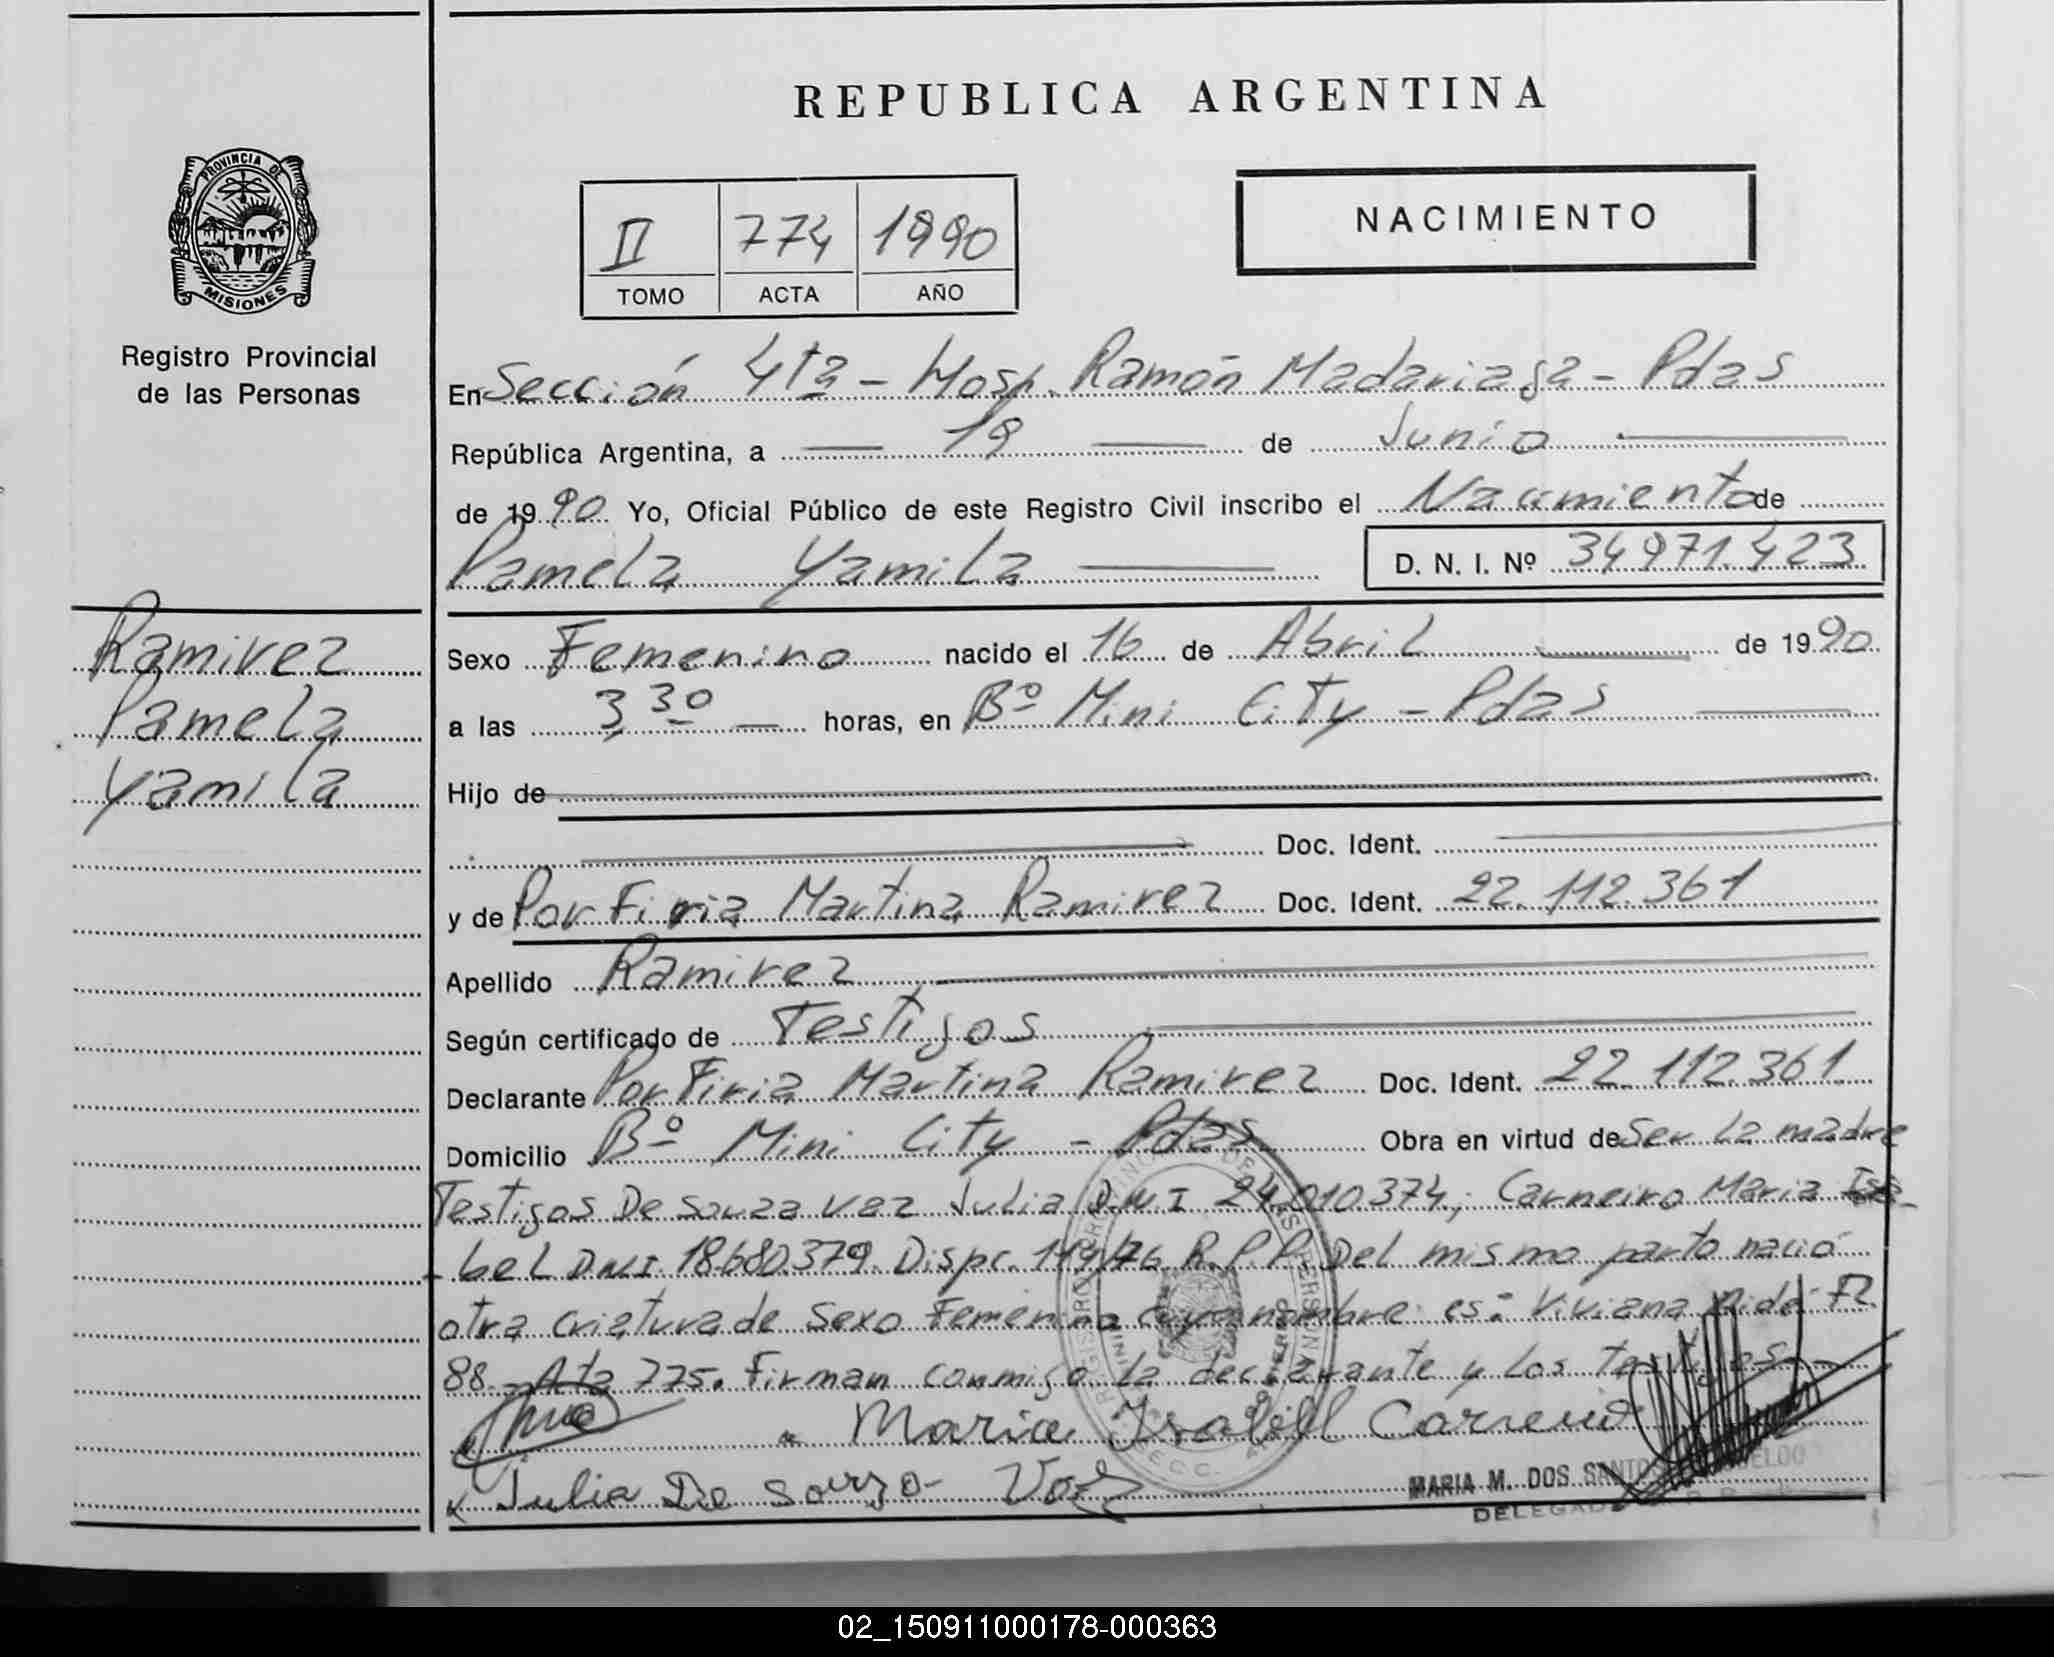 REPUBLICA ARGENTINA
PROVINCIA DE
MISIONES
Registro Provincial
de las Personas
II 774 1990
TOMO ACTA AÑO
NACIMIENTO
En Sección 4ta - Hosp. Ramón Madariaga - Pdas
República Argentina, a 19 de Junio
de 1990 Yo, Oficial Público de este Registro Civil inscribo el Nacimiento de
Pamela Yamila D. N. I. Nº 34971.423
Ramirez
Pamela
Yamila
Sexo Femenino nacido el 16 de Abril de 1990
a las 3 30 horas, en Bº Mini City - Pdas
Hijo de
Doc. Ident.
y de Porfiria Martina Ramirez Doc. Ident. 22.112.361
Apellido Ramirez
Según certificado de Testigos
Declarante Porfiria Martina Ramirez Doc. Ident. 22.112.361
Domicilio Bº Mini City - Pdas Obra en virtud de Ser La madre
Testigos De Souza Vaz Julia D.N.I 24.010.374; Carneiro Maria Isa-
-bel D.N.I. 18.680.379. Dispc. 119/76 R.P.P. Del mismo parto nació
otra criatura de Sexo Femenino cuyo nombre es: Viviana
88 - Acta 775. Firman conmigo la declarante y los testigos
Maria Isabell Carneiro
Julia De Souza Vaz
MARIA M. DOS SANTOS
DELEGADA
02_150911000178-000363